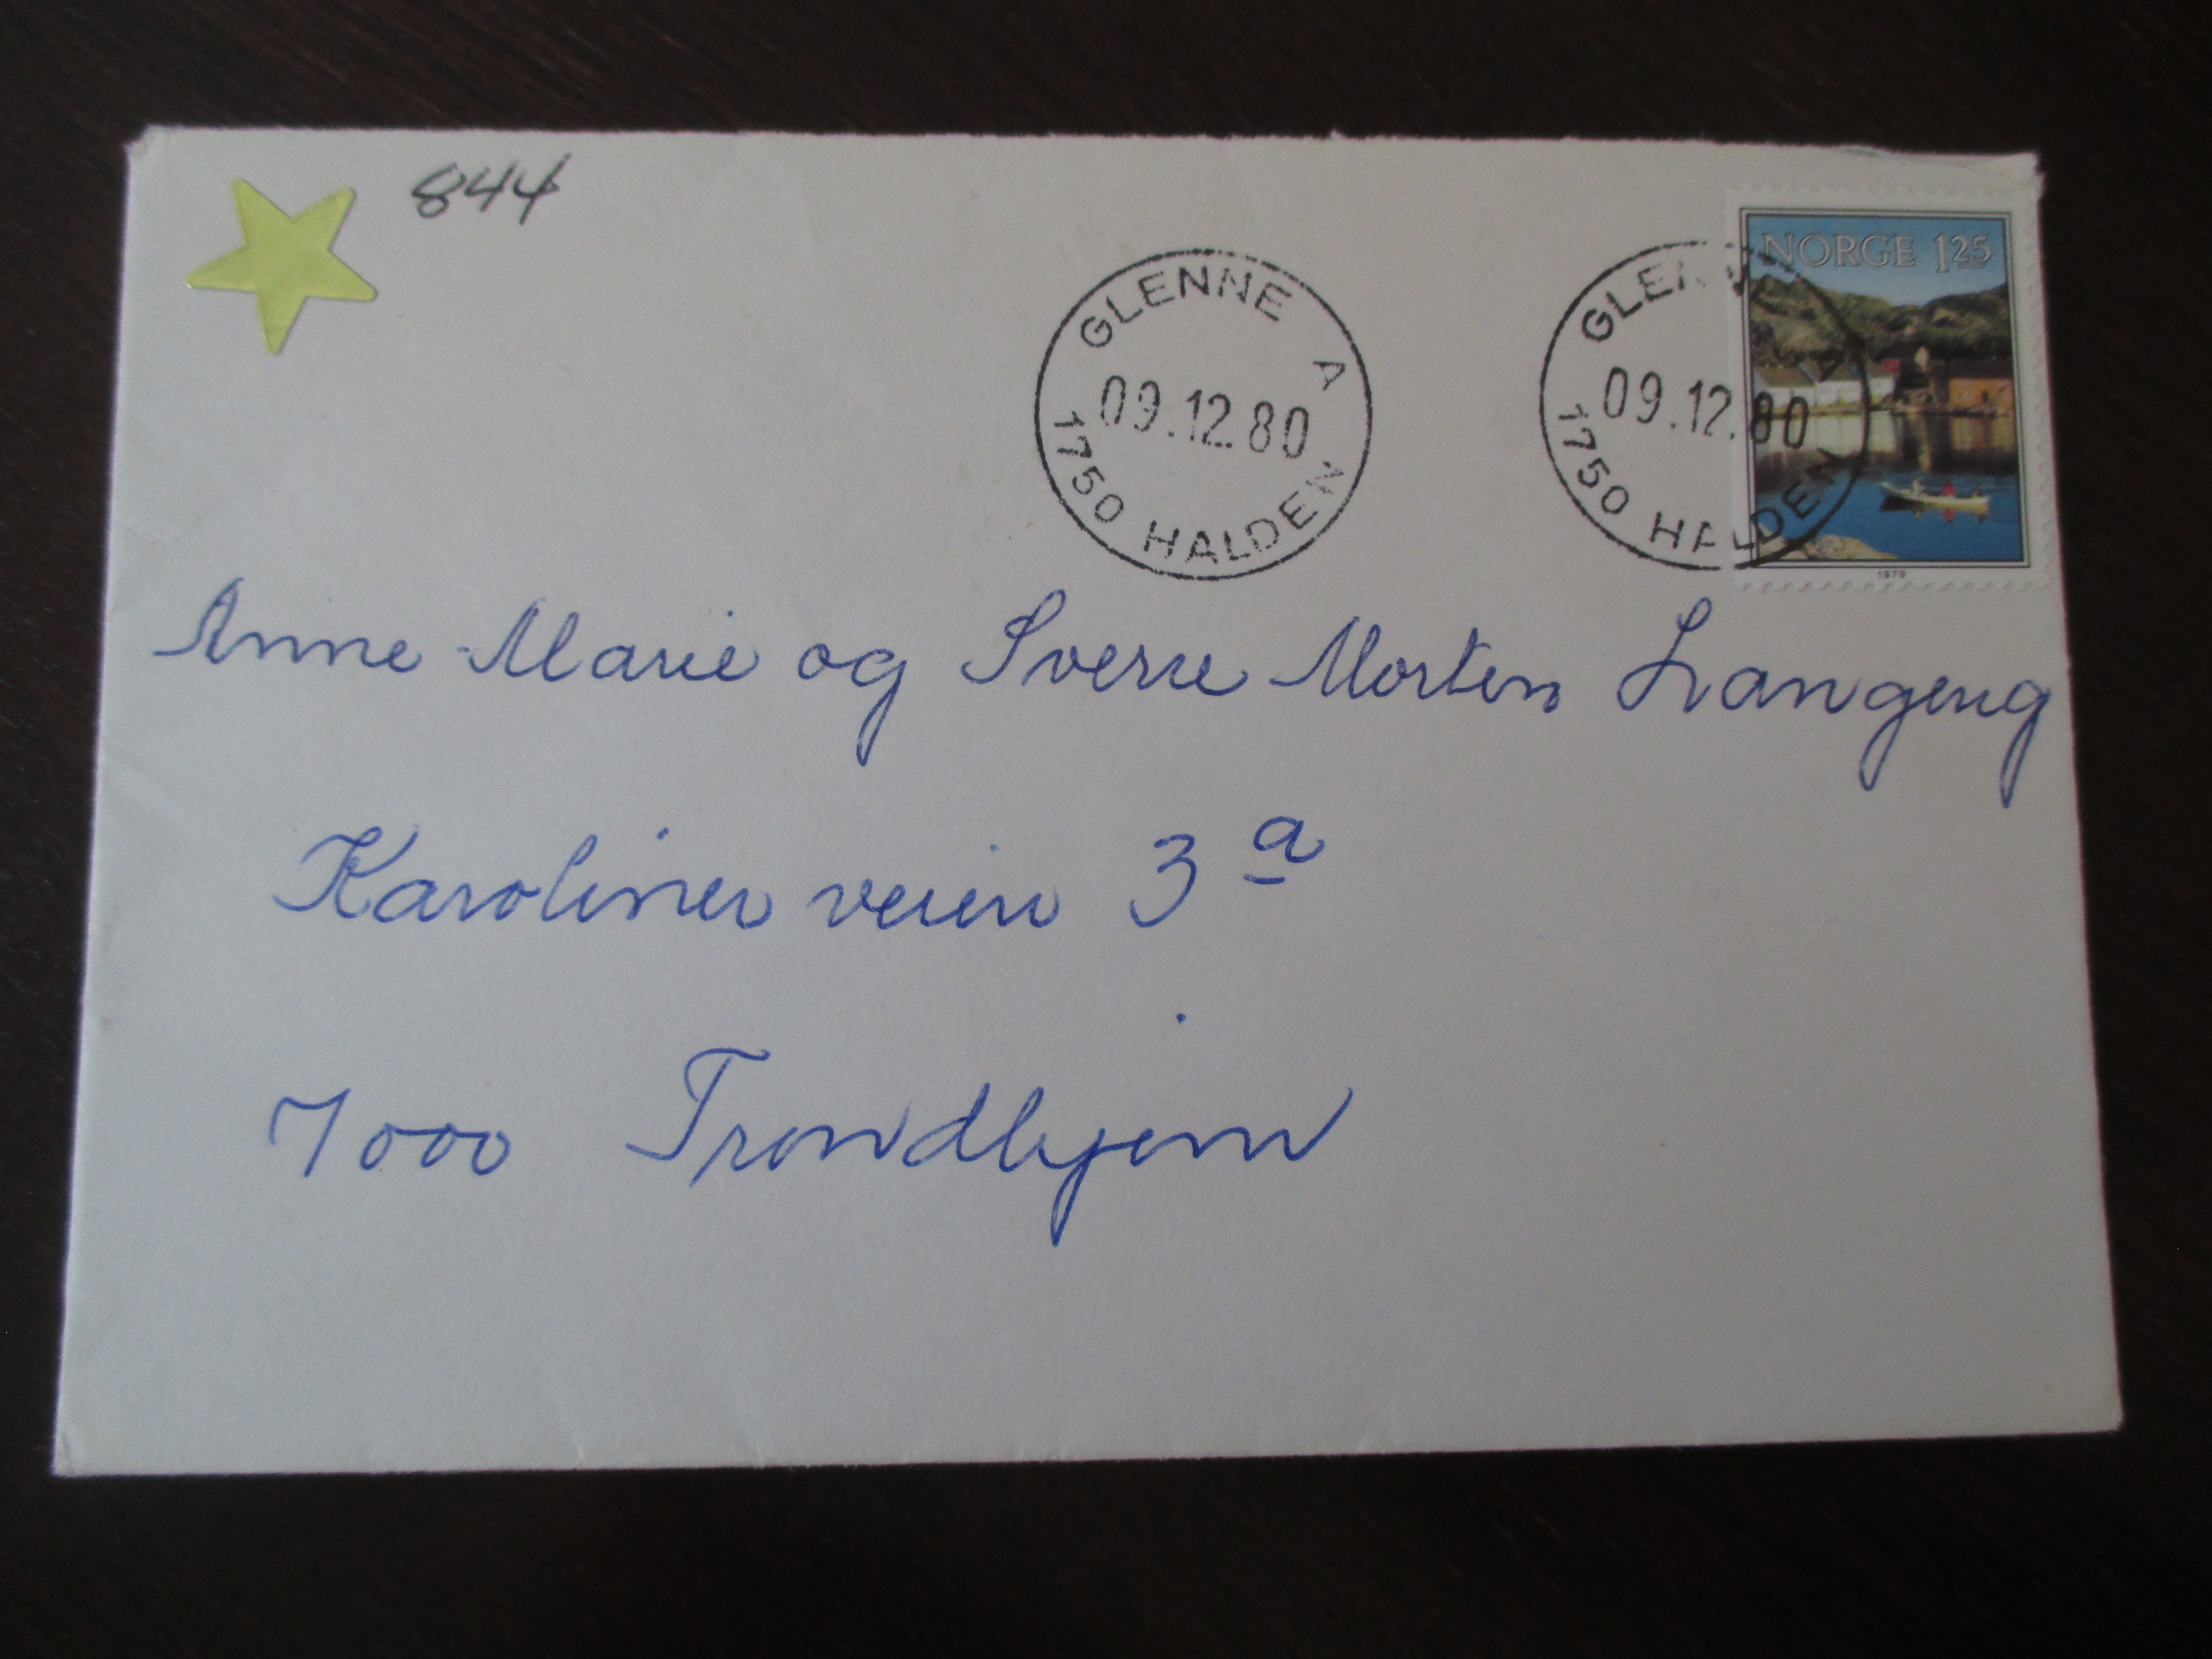 844
GLENNE A
09.12.80
1750 HALDEN
GLENNE A
09.12.80
1750 HALDEN
NORGE 125
1979
Anne-Marie og Sverre Morten Langeng
Karolinerveien 3a
7000 Trondhjem